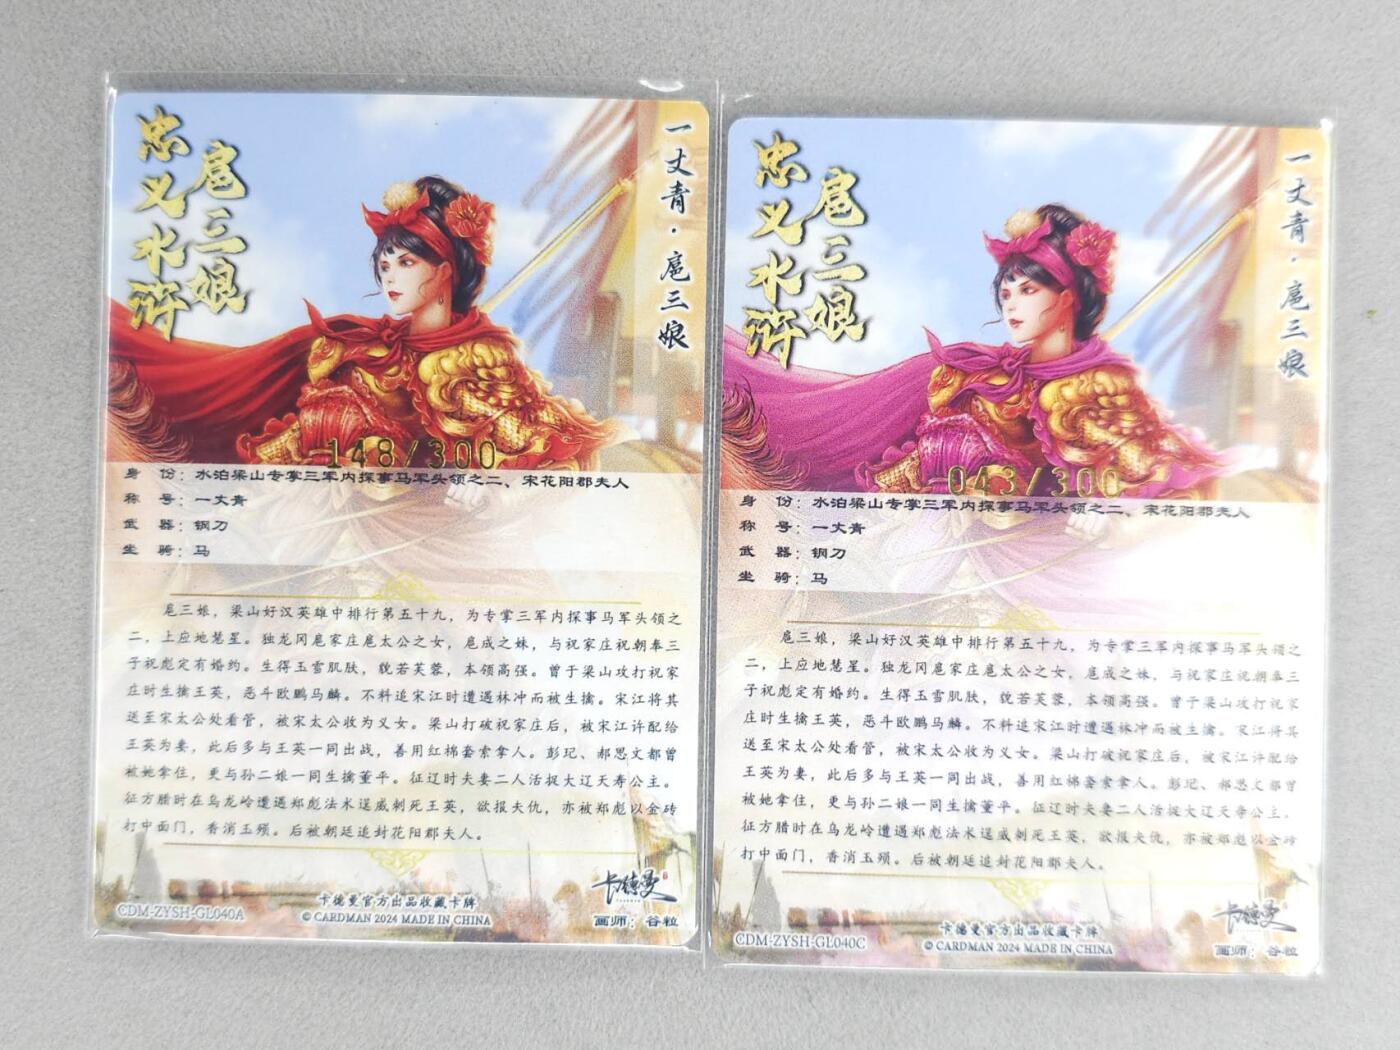 忠义水浒
扈三娘
一丈青·扈三娘
148/300
身 份：水泊梁山专掌三军内探事马军头领之二、宋花阳郡夫人
称 号：一丈青
武 器：钢刀
坐 骑：马
扈三娘，梁山好汉英雄中排行第五十九，为专掌三军内探事马军头领之
二，上应地慧星。独龙冈扈家庄扈太公之女，扈成之妹，与祝家庄祝朝奉三
子祝彪定有婚约。生得玉雪肌肤，貌若芙蓉，本领高强。曾于梁山攻打祝家
庄时生擒王英，恶斗欧鹏马麟。不料追宋江时遭遇林冲而被生擒。宋江将其
送至宋太公处看管，被宋太公收为义女。梁山打破祝家庄后，被宋江许配给
王英为妻，此后多与王英一同出战，善用红棉套索拿人。彭玘、郝思文都曾
被她拿住，更与孙二娘一同生擒董平。征辽时夫妻二人活捉大辽天寿公主。
征方腊时在乌龙岭遭遇郑彪法术逞威刺死王英，欲报夫仇，亦被郑彪以金砖
打中面门，香消玉殒。后被朝廷追封花阳郡夫人。
卡德曼
卡德曼官方出品收藏卡牌
CDM-ZYSH-GL040A
© CARDMAN 2024 MADE IN CHINA
画师：谷粒
忠义水浒
扈三娘
一丈青·扈三娘
043/300
身 份：水泊梁山专掌三军内探事马军头领之二、宋花阳郡夫人
称 号：一丈青
武 器：钢刀
坐 骑：马
扈三娘，梁山好汉英雄中排行第五十九，为专掌三军内探事马军头领之
二，上应地慧星。独龙冈扈家庄扈太公之女，扈成之妹，与祝家庄祝朝奉三
子祝彪定有婚约。生得玉雪肌肤，貌若芙蓉，本领高强。曾于梁山攻打祝家
庄时生擒王英，恶斗欧鹏马麟。不料追宋江时遭遇林冲而被生擒。宋江将其
送至宋太公处看管，被宋太公收为义女。梁山打破祝家庄后，被宋江许配给
王英为妻，此后多与王英一同出战，善用红棉套索拿人。彭玘、郝思文都曾
被她拿住，更与孙二娘一同生擒董平。征辽时夫妻二人活捉大辽天寿公主。
征方腊时在乌龙岭遭遇郑彪法术逞威刺死王英，欲报夫仇，亦被郑彪以金砖
打中面门，香消玉殒。后被朝廷追封花阳郡夫人。
卡德曼
卡德曼官方出品收藏卡牌
CDM-ZYSH-GL040C
© CARDMAN 2024 MADE IN CHINA
画师：谷粒